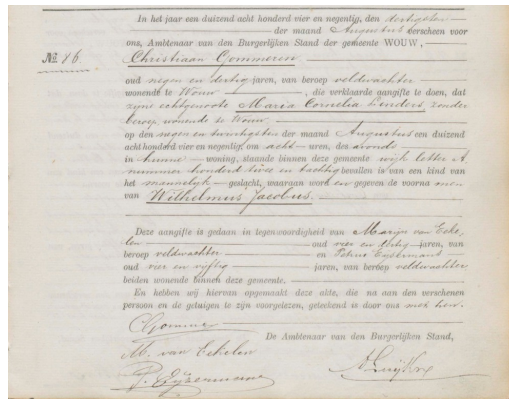 In het jaar een duizend acht honderd vier en negentig, den dertigsten
der maand Augustus verscheen voor
ons, Ambtenaar van den Burgerlijken Stand der gemeente WOUW,
No. 86.
Christiaan Gommeren
oud negen en dertig jaren, van beroep veldwachter
wonende te Wouw, die verklaarde aangifte te doen, dat
zijne echtgenoote Maria Cornelia Linders zonder
beroep wonende te Wouw
op den negen en twintigsten der maand Augustus een duizend
acht honderd vier en negentig, om acht uren, des avonds
in hunne woning, staande binnen deze gemeente wijk letter A
nummer honderd twee en tachtig bevallen is van een kind van
het mannelijk geslacht, waaraan word en gegeven de voorna men
van Wilhelmus Jacobus.
Deze aangifte is gedaan in tegenwoordigheid van Marijn van Eeke,
len oud vier en dertig jaren, van
beroep veldwachter en Petrus
oud vier en vijftig jaren, van beroep veldwachter
beiden wonende binnen deze gemeente.
En hebben wij hiervan opgemaakt deze akte, die na aan den verschenen
persoon en de getuigen te zijn voorgelezen, geteekend is door ons met hen.
De Ambtenaar van den Burgerlijken Stand,
M. van Eekelen